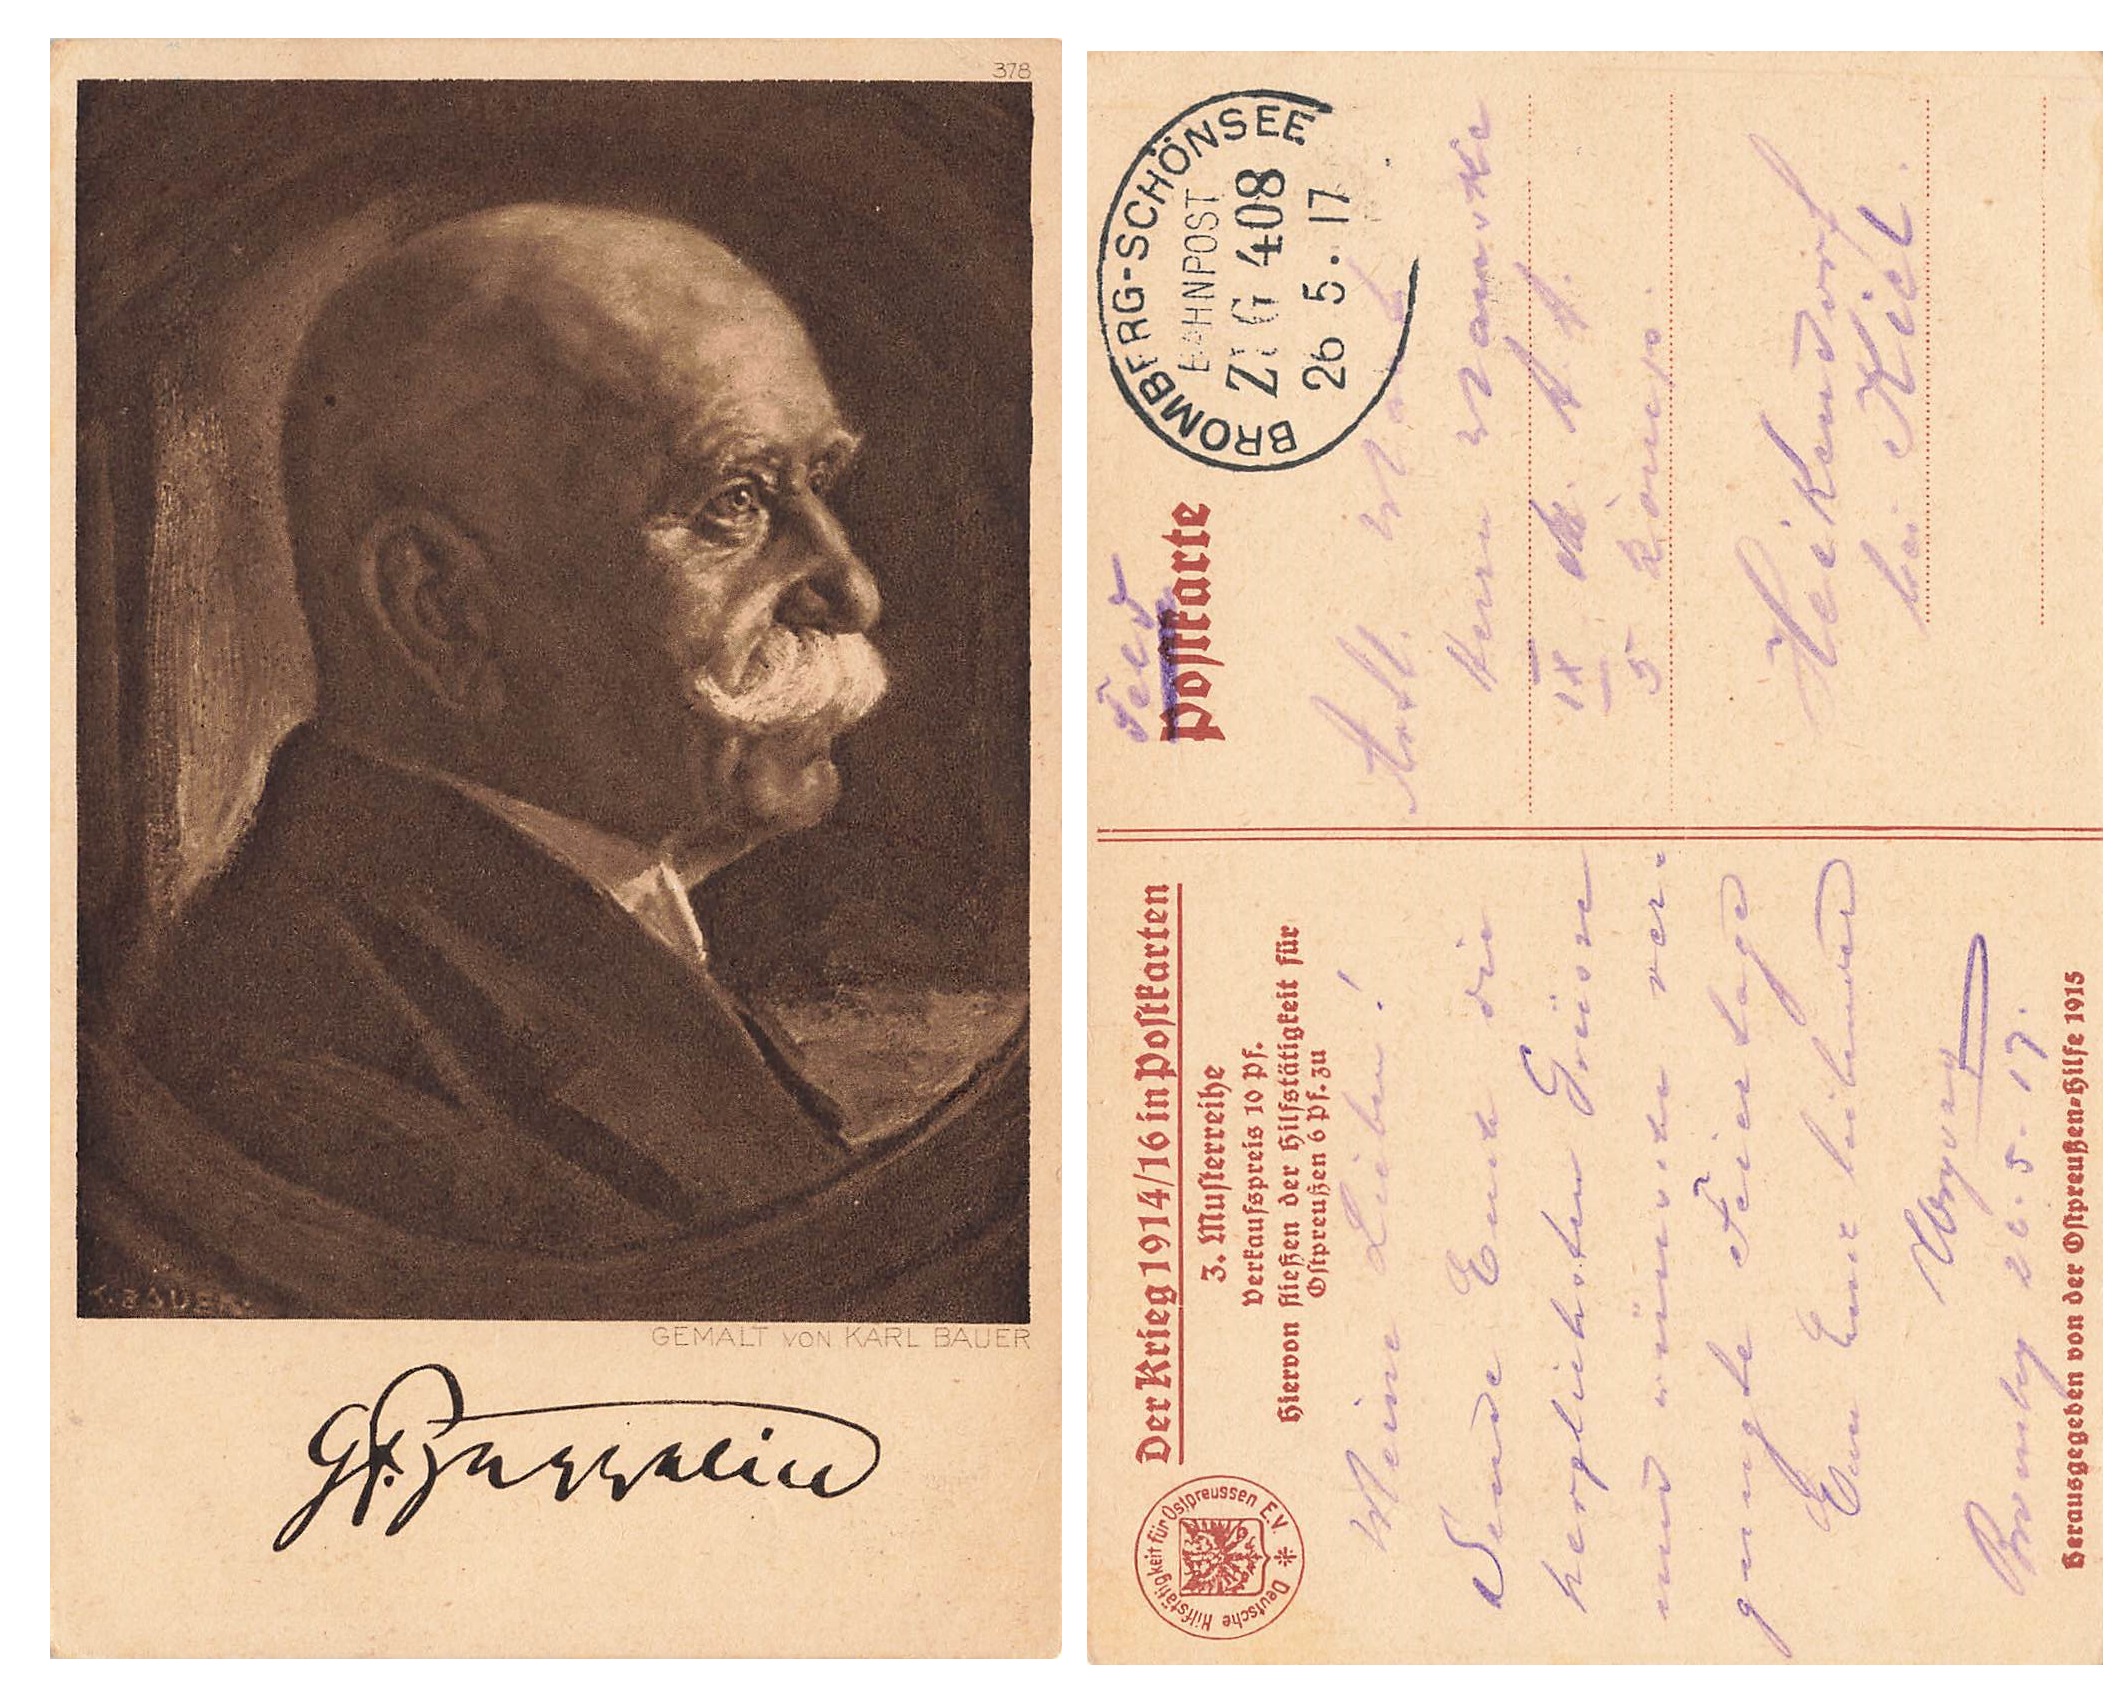 378
K. BAUER.
GEMALT VON KARL BAUER
Gf. Zeppelin
Deutsche Hilfstätigkeit für Ostpreussen E.V.
Der Krieg 1914/16 in Postkarten
3. Musterreihe
Verkaufspreis 10 Pf.
Hiervon fließen der Hilfstätigkeit für
Ostpreußen 6 Pf. zu
Meine Lieben!
Sende Euch die
herzlichsten Grüsse
und wünsche ver-
gnügte Feiertage
Euer Euch liebender
Bromberg 26.5.17.
Herausgegeben von der Ostpreußen-Hilfe 1915
Feld
Postkarte
BROMBERG-SCHÖNSEE
BAHNPOST
ZUG 408
26 5. 17
Herrn
IX M. A. A.
5 Komp.
Heikendorf
bei Kiel.